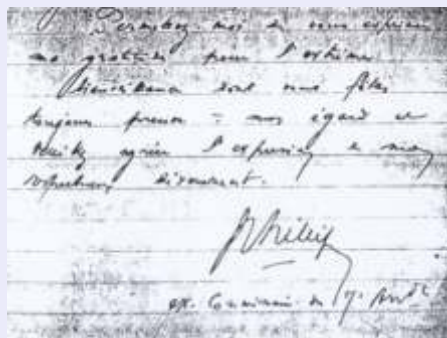 Permettez moi de vous exprimer
ma gratitude pour l'estime
bienveillance dont vous faites
toujours preuve à mon égard et
veuillez agréer l'expression de mon
respectueux dévouement.
ex. Commissaire du